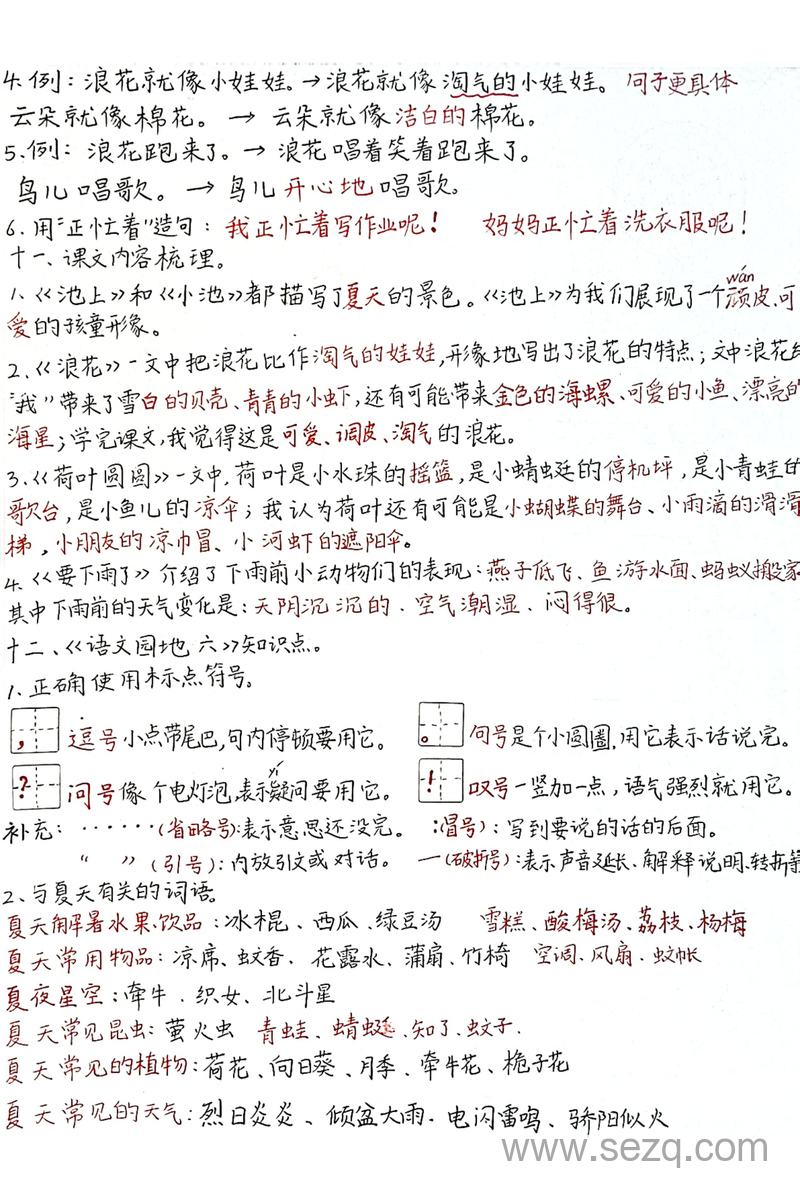 4.例：浪花就像小娃娃。→浪花就像淘气的小娃娃。 句子更具体
云朵就像棉花。 → 云朵就像洁白的棉花。
5.例：浪花跑来了。→ 浪花唱着笑着跑来了。
鸟儿唱歌。→ 鸟儿开心地唱歌。
6.用“正忙着”造句：我正忙着写作业呢！ 妈妈正忙着洗衣服呢！
十一、课文内容梳理。
wán
1.《池上》和《小池》都描写了夏天的景色。《池上》为我们展现了一个顽皮、可
爱的孩童形象。
2.《浪花》一文中把浪花比作淘气的娃娃，形象地写出了浪花的特点；文中浪花给
“我”带来了雪白的贝壳、青青的小虾，还有可能带来金色的海螺、可爱的小鱼、漂亮的
海星；学完课文，我觉得这是可爱、调皮、淘气的浪花。
3.《荷叶圆圆》一文中，荷叶是小水珠的摇篮，是小蜻蜓的停机坪，是小青蛙的
歌台，是小鱼儿的凉伞；我认为荷叶还有可能是小蝴蝶的舞台、小雨滴的滑滑
梯，小朋友的凉巾冒、小河虾的遮阳伞。
4.《要下雨了》介绍了下雨前小动物们的表现：燕子低飞、鱼游水面、蚂蚁搬家
其中下雨前的天气变化是：天阴沉沉的、空气潮湿、闷得很。
十二、《语文园地六》知识点。
1.正确使用标点符号。
， 逗号小点带尾巴，句内停顿要用它。 。 句号是个小圆圈，用它表示话说完。
yí
？ 问号像个电灯泡，表示疑问要用它。 ！ 叹号一竖加一点，语气强烈就用它。
补充：······（省略号）：表示意思还没完。 ：（冒号）：写到要说的话的后面。
“ ”（引号）：内放引文或对话。 —（破折号）：表示声音延长、解释说明、转折等
2、与夏天有关的词语。
夏天解暑水果、饮品：冰棍、西瓜、绿豆汤 雪糕、酸梅汤、荔枝、杨梅
夏天常用物品：凉席、蚊香、花露水、蒲扇、竹椅 空调、风扇、蚊帐
夏夜星空：牵牛、织女、北斗星
夏天常见昆虫：萤火虫 青蛙、蜻蜓、知了、蚊子.
夏天常见的植物：荷花、向日葵、月季、牵牛花、栀子花
夏天常见的天气：烈日炎炎、倾盆大雨、电闪雷鸣、骄阳似火
www.sezq.com